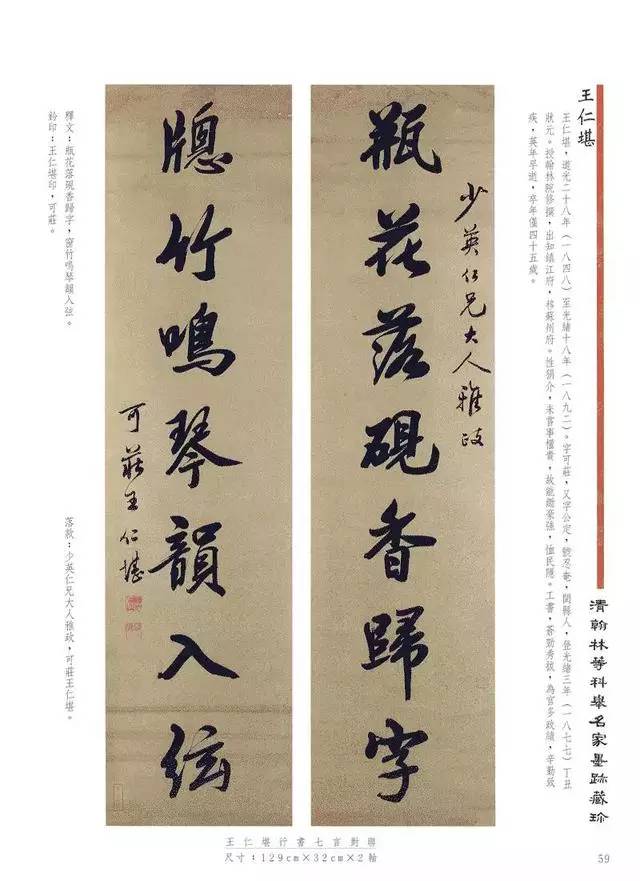 王仁堪
清翰林等科舉名家墨跡藏珍
王仁堪，道光二十八年（一八四八）至光緒十八年（一八九二）。字可莊，又字公定，號忍菴，閩縣人，登光緒三年（一八七七）丁丑
狀元。授翰林院修撰，出知鎮江府，移蘇州府。性狷介，未嘗事權貴，故能鋤豪強，恤民隱。工書，蒼勁秀拔，為官多政績，辛勤致
疾，英年早逝，卒年僅四十五歲。
少英仁兄大人雅政
瓶花落硯香歸字
牕竹鳴琴韻入弦
可莊王仁堪
釋文：瓶花落硯香歸字，窗竹鳴琴韻入弦。
鈐印：王仁堪印，可莊。
落款：少英仁兄大人雅政，可莊王仁堪。
王仁堪行書七言對聯
尺寸：129cm×32cm×2軸
59